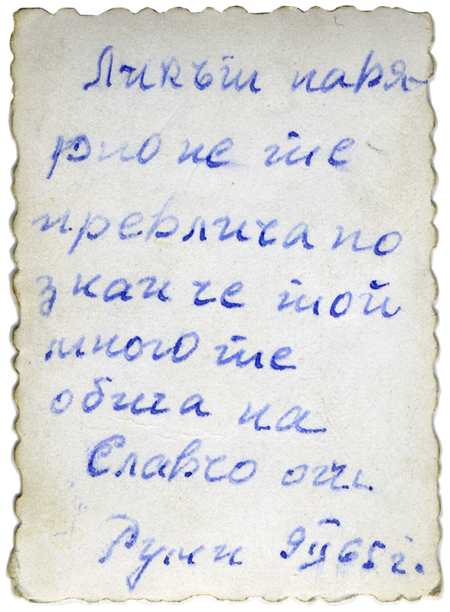 Ликът навя-
рно не те
превлича но
знаи че той
много те
обича на
Славчо от
Руми 9 II 65 г.